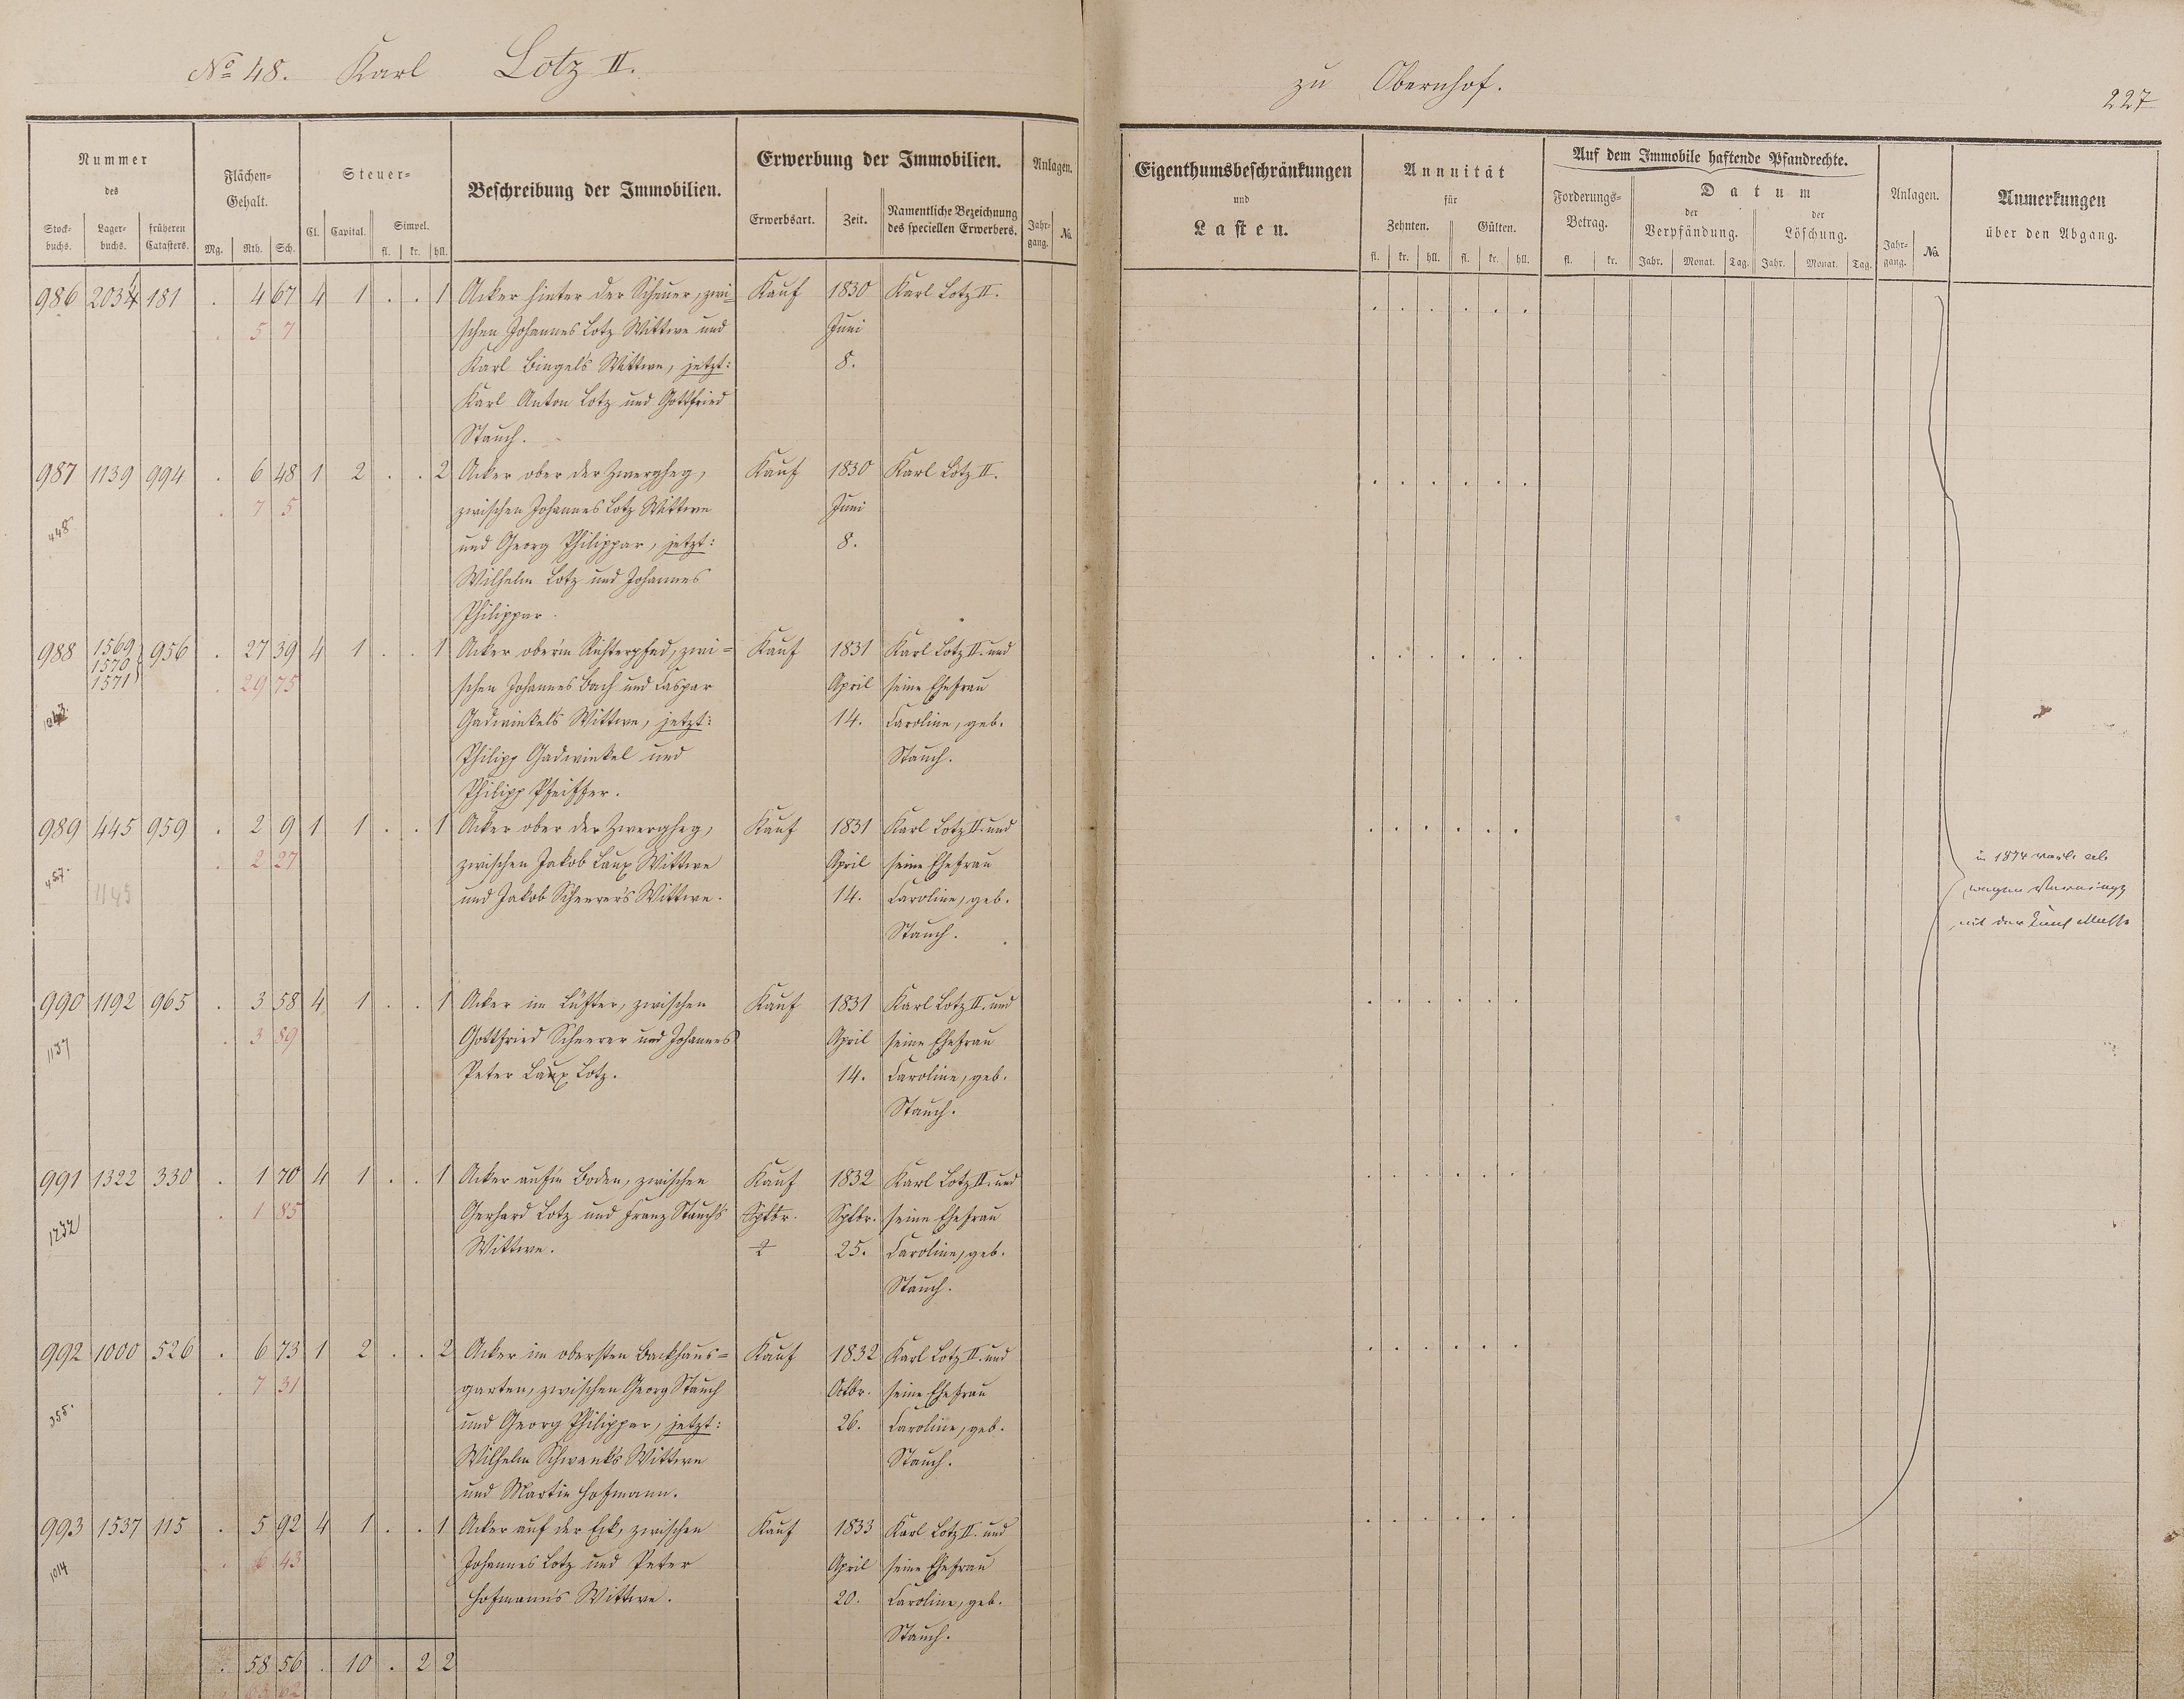 No 48. Karl Lotz II.
zu Obernhof.
227
Nummer des
Stock-buchs. Lager-buchs. früheren Catasters.
Flächen-Gehalt.
Mg. Rth. Sch.
Steuer-
Cl. Capital. Simpel.
fl. kr. hll.
Beschreibung der Immobilien.
Erwerbung der Immobilien.
Erwerbsart. Zeit. Namentliche Bezeichnung des speciellen Erwerbers.
Anlagen.
Jahr-gang. No.
Eigenthumsbeschränkungen
und
Lasten.
Annuität
für
Zehnten. Gülten.
fl. kr. hll. fl. kr. hll.
Auf dem Immobile haftende Pfandrechte.
Forderungs-Betrag.
fl. kr.
Datum
der Verpfändung. der Löschung.
Jahr. Monat. Tag. Jahr. Monat. Tag.
Anlagen.
Jahr-gang. No.
Anmerkungen
über den Abgang.
986 2034 181 . 4 67 4 1 . . 1 Acker hinter der Scheuer, zwi- Kauf 1830 Karl Lotz II.
. 5 7 schen Johannes Lotz Wittwe und Juni
Karl Bingel's Wittwe, jetzt: 8.
Karl Anton Lotz und Gottfried
Stauch.
987 1139 994 . 6 48 1 2 . . 2 Acker ober der Zwergheg, Kauf 1830 Karl Lotz II.
. 7 5 zwischen Johannes Lotz Wittwe Juni
448. und Georg Philippar, jetzt: 8.
Wilhelm Lotz und Johannes
Philippar.
988 1569 1570 1571 956 . 27 39 4 1 . . 1 Acker ober'm Richterpfad, zwi= Kauf 1831 Karl Lotz II. und
. 29 75 schen Johannes Bach und Caspar April seine Ehefrau
Gadwinkels Wittwe, jetzt: 14. Caroline, geb.
Philipp Gadwinkel und Stauch.
Philipp Pfeiffer.
989 445 959 . 2 9 1 1 . . 1 Acker ober der Zwergheg, Kauf 1831 Karl Lotz II. und
. 2 27 zwischen Jakob Laux Wittwe April seine Ehefrau
457. 1145 und Jakob Scheerer's Wittwe. 14. Caroline, geb.
Stauch.
in 1874
wegen
mit der
990 1192 965 . 3 58 4 1 . . 1 Acker im Lüfter, zwischen Kauf 1831 Karl Lotz II. und
. 3 89 Gottfried Scheerer und Johannes April seine Ehefrau
1137 Peter Laux Lotz. 14. Caroline, geb.
Stauch.
991 1322 330 . 1 70 4 1 . . 1 Acker auf'm Boden, zwischen Kauf 1832 Karl Lotz II. und
. 1 85 Gerhard Lotz und Franz Stauch's Sptbr. Sptbr. seine Ehefrau
1232 Wittwe. 2 25. Caroline, geb.
Stauch.
992 1000 526 . 6 73 1 2 . . 2 Acker im obersten Backhaus= Kauf 1832 Karl Lotz II. und
. 7 31 garten, zwischen Georg Stauch Octbr. seine Ehefrau
355. und Georg Philippar, jetzt: 26. Caroline, geb.
Wilhelm Schwenk's Wittwe Stauch.
und Martin Hofmann.
993 1537 115 . 5 92 4 1 . . 1 Acker auf der Eck, zwischen Kauf 1833 Karl Lotz II. und
. 6 43 Johannes Lotz und Peter April seine Ehefrau
1014 Hofmann's Wittwe. 20. Caroline, geb.
Stauch.
. 58 56 . 10 . 2 2